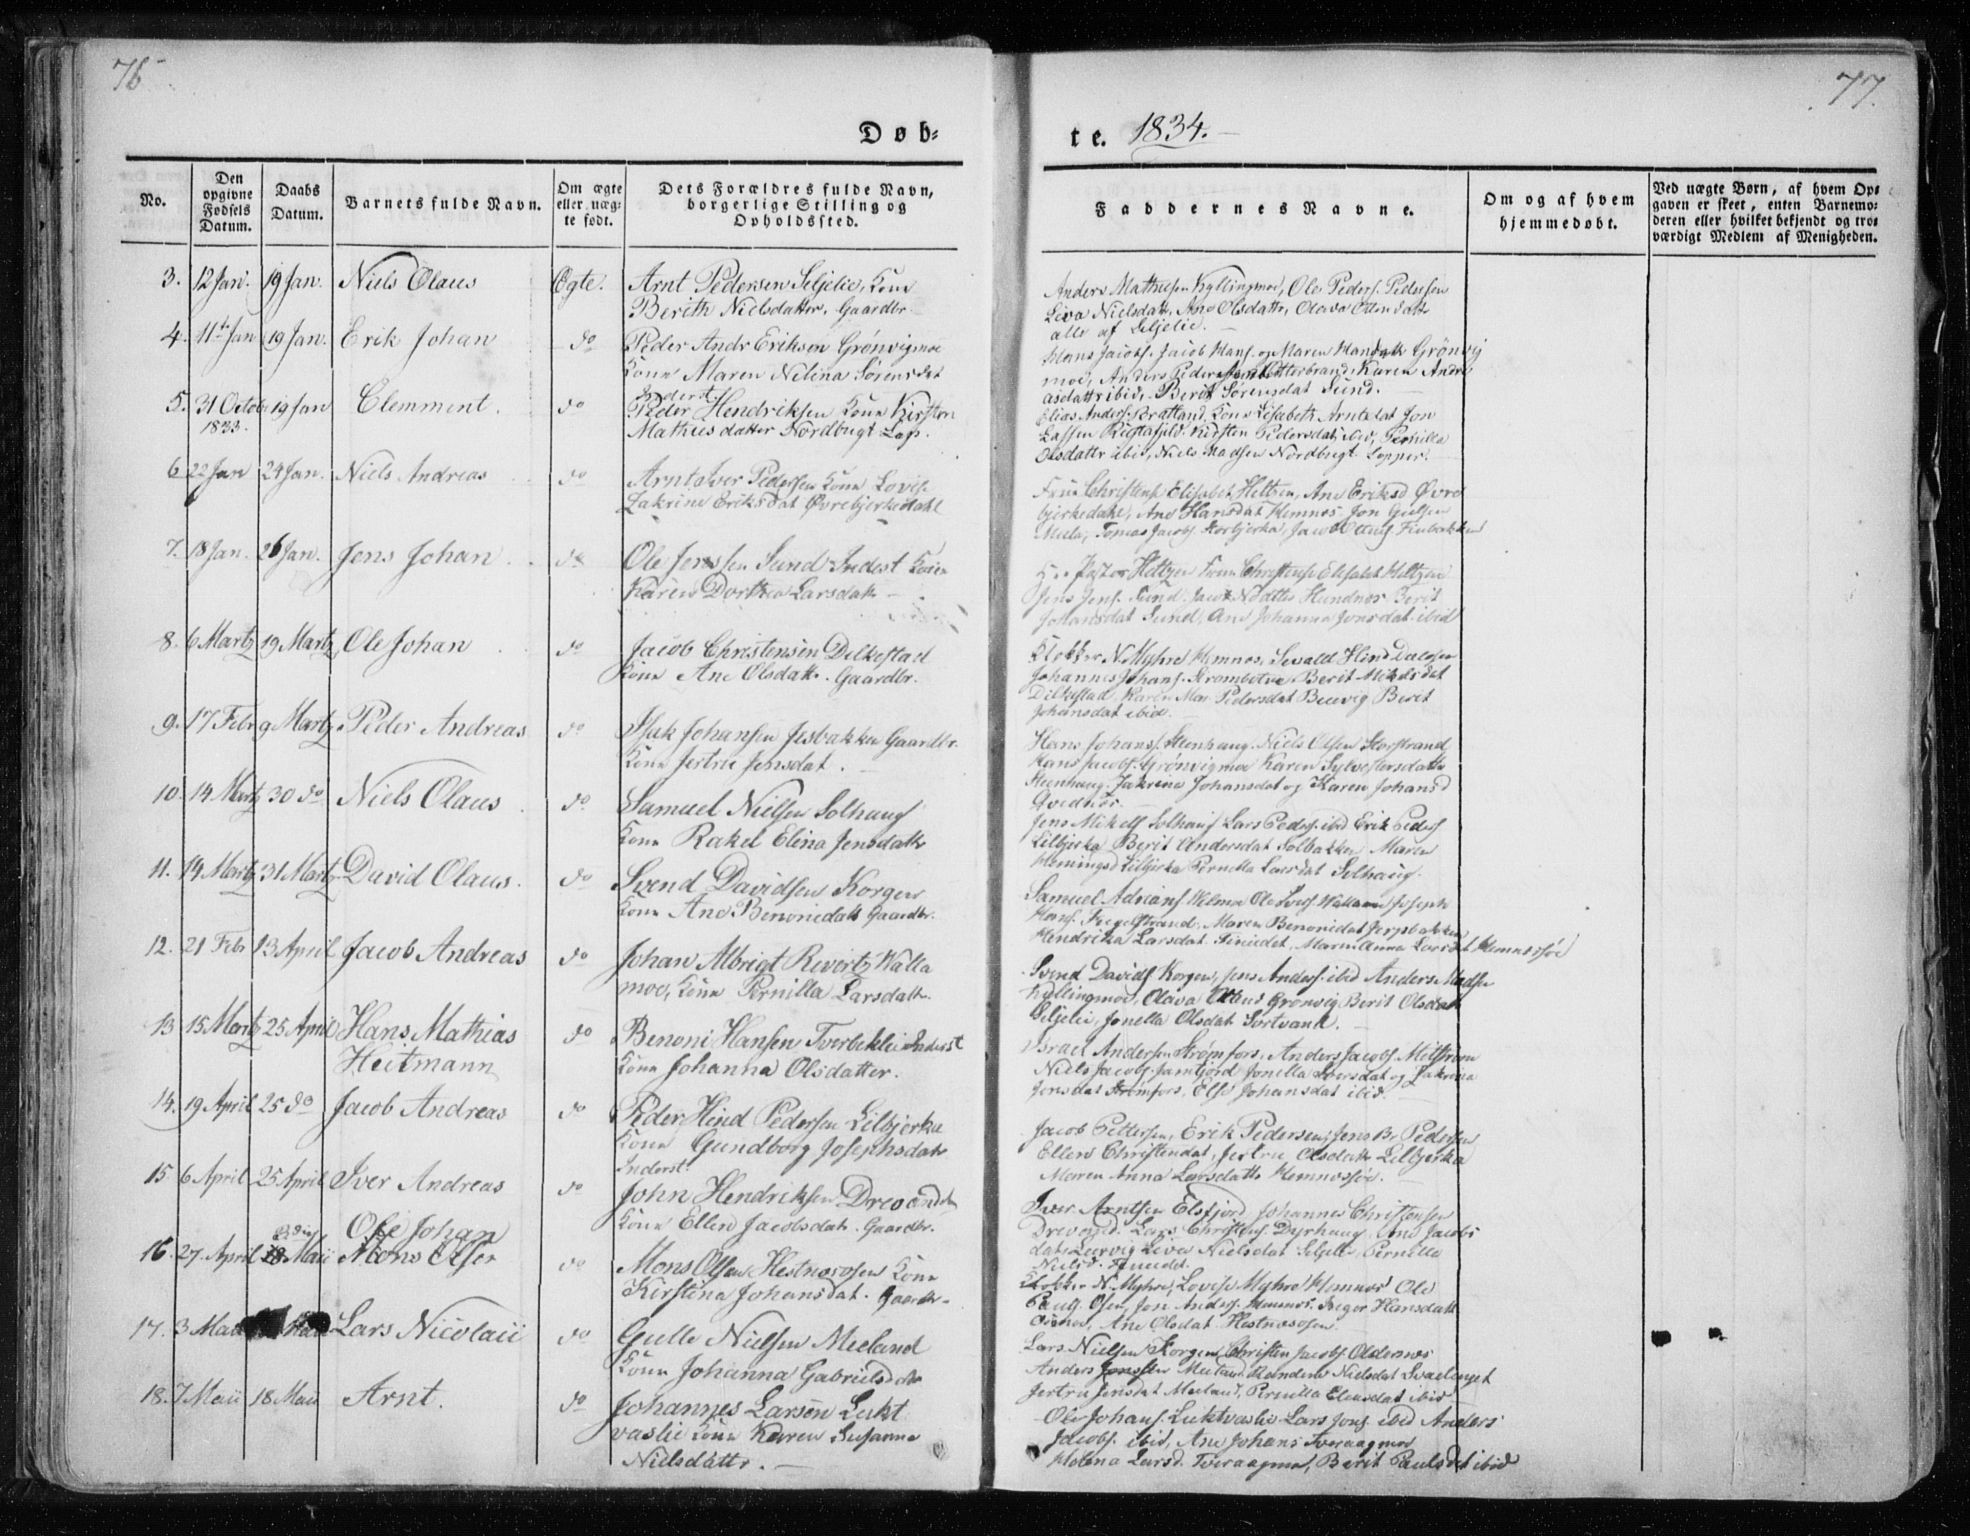 76
77.
Døb-
te. 1834.
No.
Den opgivne Fødsels Datum.
Daabs Datum.
Barnets fulde Navn.
Om ægte eller uægte født.
Dets Forældres fulde Navn, borgerlige Stilling og Opholdssted.
Faddernes Navne.
Om og af hvem hjemmedøbt.
Ved uægte Børn, af hvem Opgaven er skeet, enten Barnemoderen eller hvilket bekjendt og troværdigt Medlem af Menigheden.
3. 12 Jan. 19 Jan. Niels Olaus Ægte. Arnt Pedersen Seljelie, Kone
Berith Nielsdatter, Gaardbr.
Anders Mathisen Kyllingmoe, Ole Peders. Pedersen
Liva Nielsdatt, Ane Olsdatter, Olava
alle af Seljelie.
4. 11te Jan 19 Jan. Erik Johan do Peder Andr Eriksen Grønvigmoe
Kone Maren Nelina Sørensdat
Hans Jacobs. Jacob Hans. og Maren Hansdatt Grönvig
moe, Anders Peders Karen Andre
asdattr ibid, Berit Sørensdat Sund.
5. 31 Octob 1833. 19 Jan Clemment. do Peder Hendriksen Kone Kirsten
Mathiesdatter Nordbugt Lap.
Elias Anders. Bratland, Kone Lisabeth Arntsdat Jon
Lassen Kirsten Pedersdat, ibid, Pernilla
Olsdattr ibid, Niels Madsen Nordbugt Lopper.
6. 22 Jan 24 Jan. Niels Andreas do Arnt Iver Pedersen Kone Lovise
Zakrine Eriksdat Øvrebjerkedahl
Frue Christense Elisabet Heltzen, Ane Eriksd Øvre
bjerkedahl, Ane Hansdat Hemnes Jon
Tomas Jacobs. Storbjerka, Jacob
7. 18 Jan. 26 Jan. Jens Johan do Ole Jenssen Sund Inderst Kone
Karen Dorthea Larsdatt
Hr. Pastor Heltzen Frue Christense Elisabet Heltzen
Jens Jens. Sund. Jacob Hundnes Berit
Johansdat Sund, Ane Johanna Jonsdat ibid
8. 6 Martz 19 Martz Ole Johan do Jacob Christensen Dilkestad
Kone Ane Olsdatt. Gaardbr.
Klokker N. Myhre Hemnes, Sevald Hind
Johannes Johans. Berit Mikelsdat
Dilkestad, Karen Mar. Pedersdat Berit
Johansdat ibid.
9. 17 Febr 9 Martz Peder Andreas do Isak Johansen Jisbakken Gaardbr.
Kone Jertru Jensdat.
Hans Johans. Steenhaug. Niels Olsen Storstrand
Hans Jacobs. Grönvigmoe Karen Sylvestersdatt
Steenhaug Zakrine Johansdat og Karen Johansd
10. 14 Martz 30 do Niels Olaus do Samuel Nielsen Solhaug
Kone Rakel Elina Jensdattr
Jens Mikels. Solhaug Lars Peders. ibid Erik Peders
Lilbjerka Berit Andersdat Solbakken Maren
Hemingsd Lilbjerka Pernella Larsdat Solhaug.
11. 14 Martz 31 Martz David Olaus. do Svend Davidsen Korgen
Kone Ane Benonisdatt Gaardbr.
Samuel Adrians Ole Joseph
Hans. Maren Benonidat Jerpbakken
Hendrika Larsdat Finnedet, Maren Anna Larsdat Hemnessøe
12. 21 Febr 13 April Jacob Andreas do Johan Albrigt Revertz Walla
moe, Kone Pernilla Larsdatt.
Svend Davids. Korgen, Jens Anders. ibid Anders Madsen
Kyllingmoe, Olava Grønvig Berit Olsdatt
Seljelie, Jonella Olsdat Sortvand.
13 15 Martz 25 April Hans Mathias
Heitmann do Benoni Hansen Inderst
Kone Johanna Olsdatter.
Israel Andersen Strømfors, Anders Jacobs.
Niels Jacobs. Jonella Iversdat og Zakrina
Jensdat Strømfors, Else Johansdat ibid.
14. 19 April 25 do Jacob Andreas do Peder Hind Pedersen Lilbjerka
Kone Gundborg Josephsdatt
Inderst
Jacob Pettersen, Erik Pedersen, Jens Br. Pedersen
Ellen Christensdat, Jertru Olsdatt Lilbjerka
Maren Anna Larsdatt Hemnessøe.
15. 6 April 25 April Iver Andreas do John Hendriksen Drevvand
Kone Ellen Jacobsdat. Gaardbr.
Iver Arntsen Elsfjord Johannes Christensen
Lars Christens. Dyrhaug, Ane Jacobs
dat, Leervig Liva Nielsdat Seljelie, Pernella
Nielsd. Finnedet.
16. 27 April 18 Maii Ole Johan
Mons Olsen do Mons Olsen Hestnesosen Kone
Kirstina Johansdat. Gaardbr.
Klokker N. Myhre, Lovise Myhre Hemnes Ole
Pauls. Osen, Jon Anders. Hemnes. Inger Hansdatt
Ane Olsdat Hestnesosen.
17. 3 Maii Lars Nicolaii do Gulle Nielsen Meeland
Kone Johanna Gabrielsdatt
Lars Nielsen Korgen, Christen Jacobs. Oldernes
Anders Jenssen Meeland, Nielsdat
Jertru Jensdat Meeland, Pernilla Eliasdat ibid
18. 7 Maii 18 Maii Arnt. do Johannes Larsen Lukt
vaslie Kone Karen Susanna
Nielsdattr.
Ole Johans. Luktvaslie Lars Jons. ibid Anders
Jacobs. ibid, Ane Johans Tveraagmoe
Helena Larsd. Tveraagmoe, Berit Paulsdat ibid